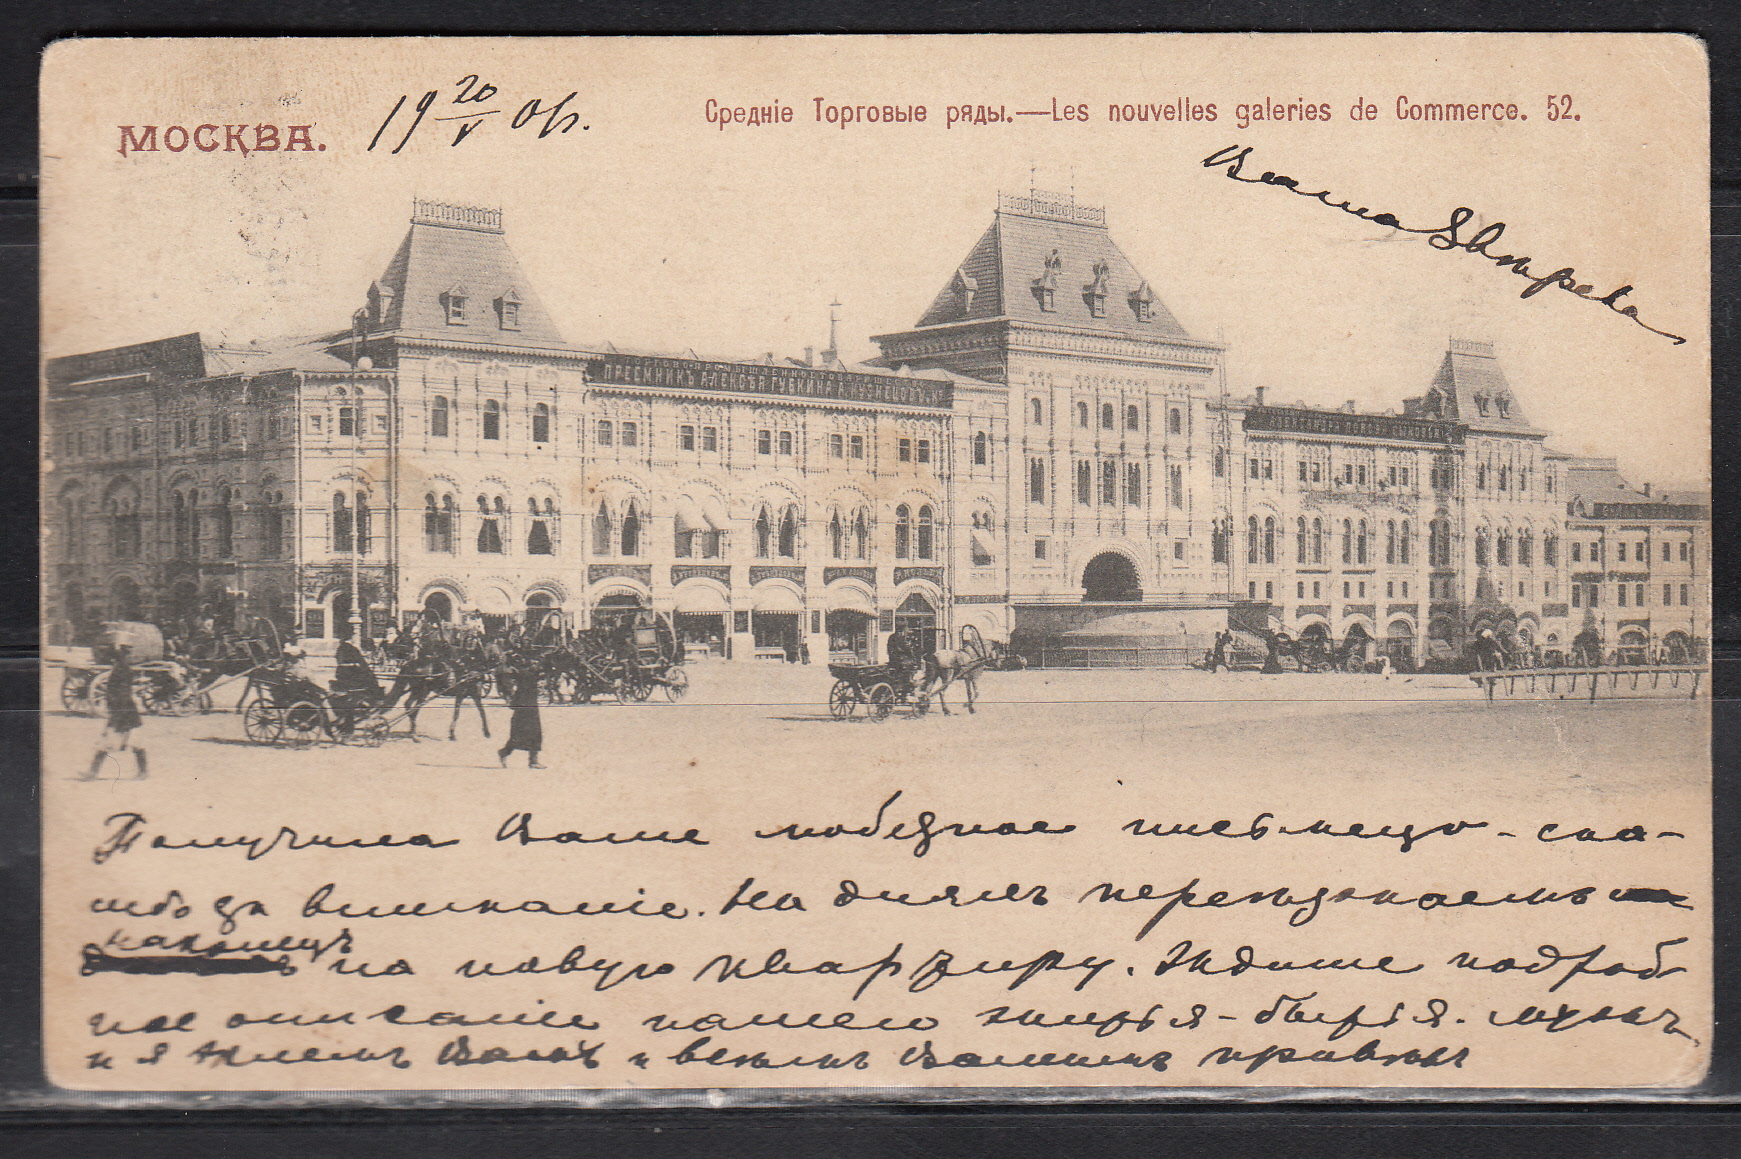 МОСКВА.
19 20/V 01г.
Средніе Торговые ряды.—Les nouvelles galeries de Commerce. 52.
Ваша
ТОРГОВО-ПРОМЫШЛЕННОЕ ТОВАРИЩЕСТВО
ПРЕЕМНИКЪ АЛЕКСѢЯ ГУБКИНА А. КУЗНЕЦОВЪ и Ко
Получила Ваше любезное письмецо - спа-
сибо за вниманіе. На дняхъ переѣзжаемъ
наконецъ на новую квартиру. Ждите подроб
ное описаніе нашего житья-бытія. Мужъ
и я шлемъ Вамъ и всѣмъ Вашимъ привѣтъ